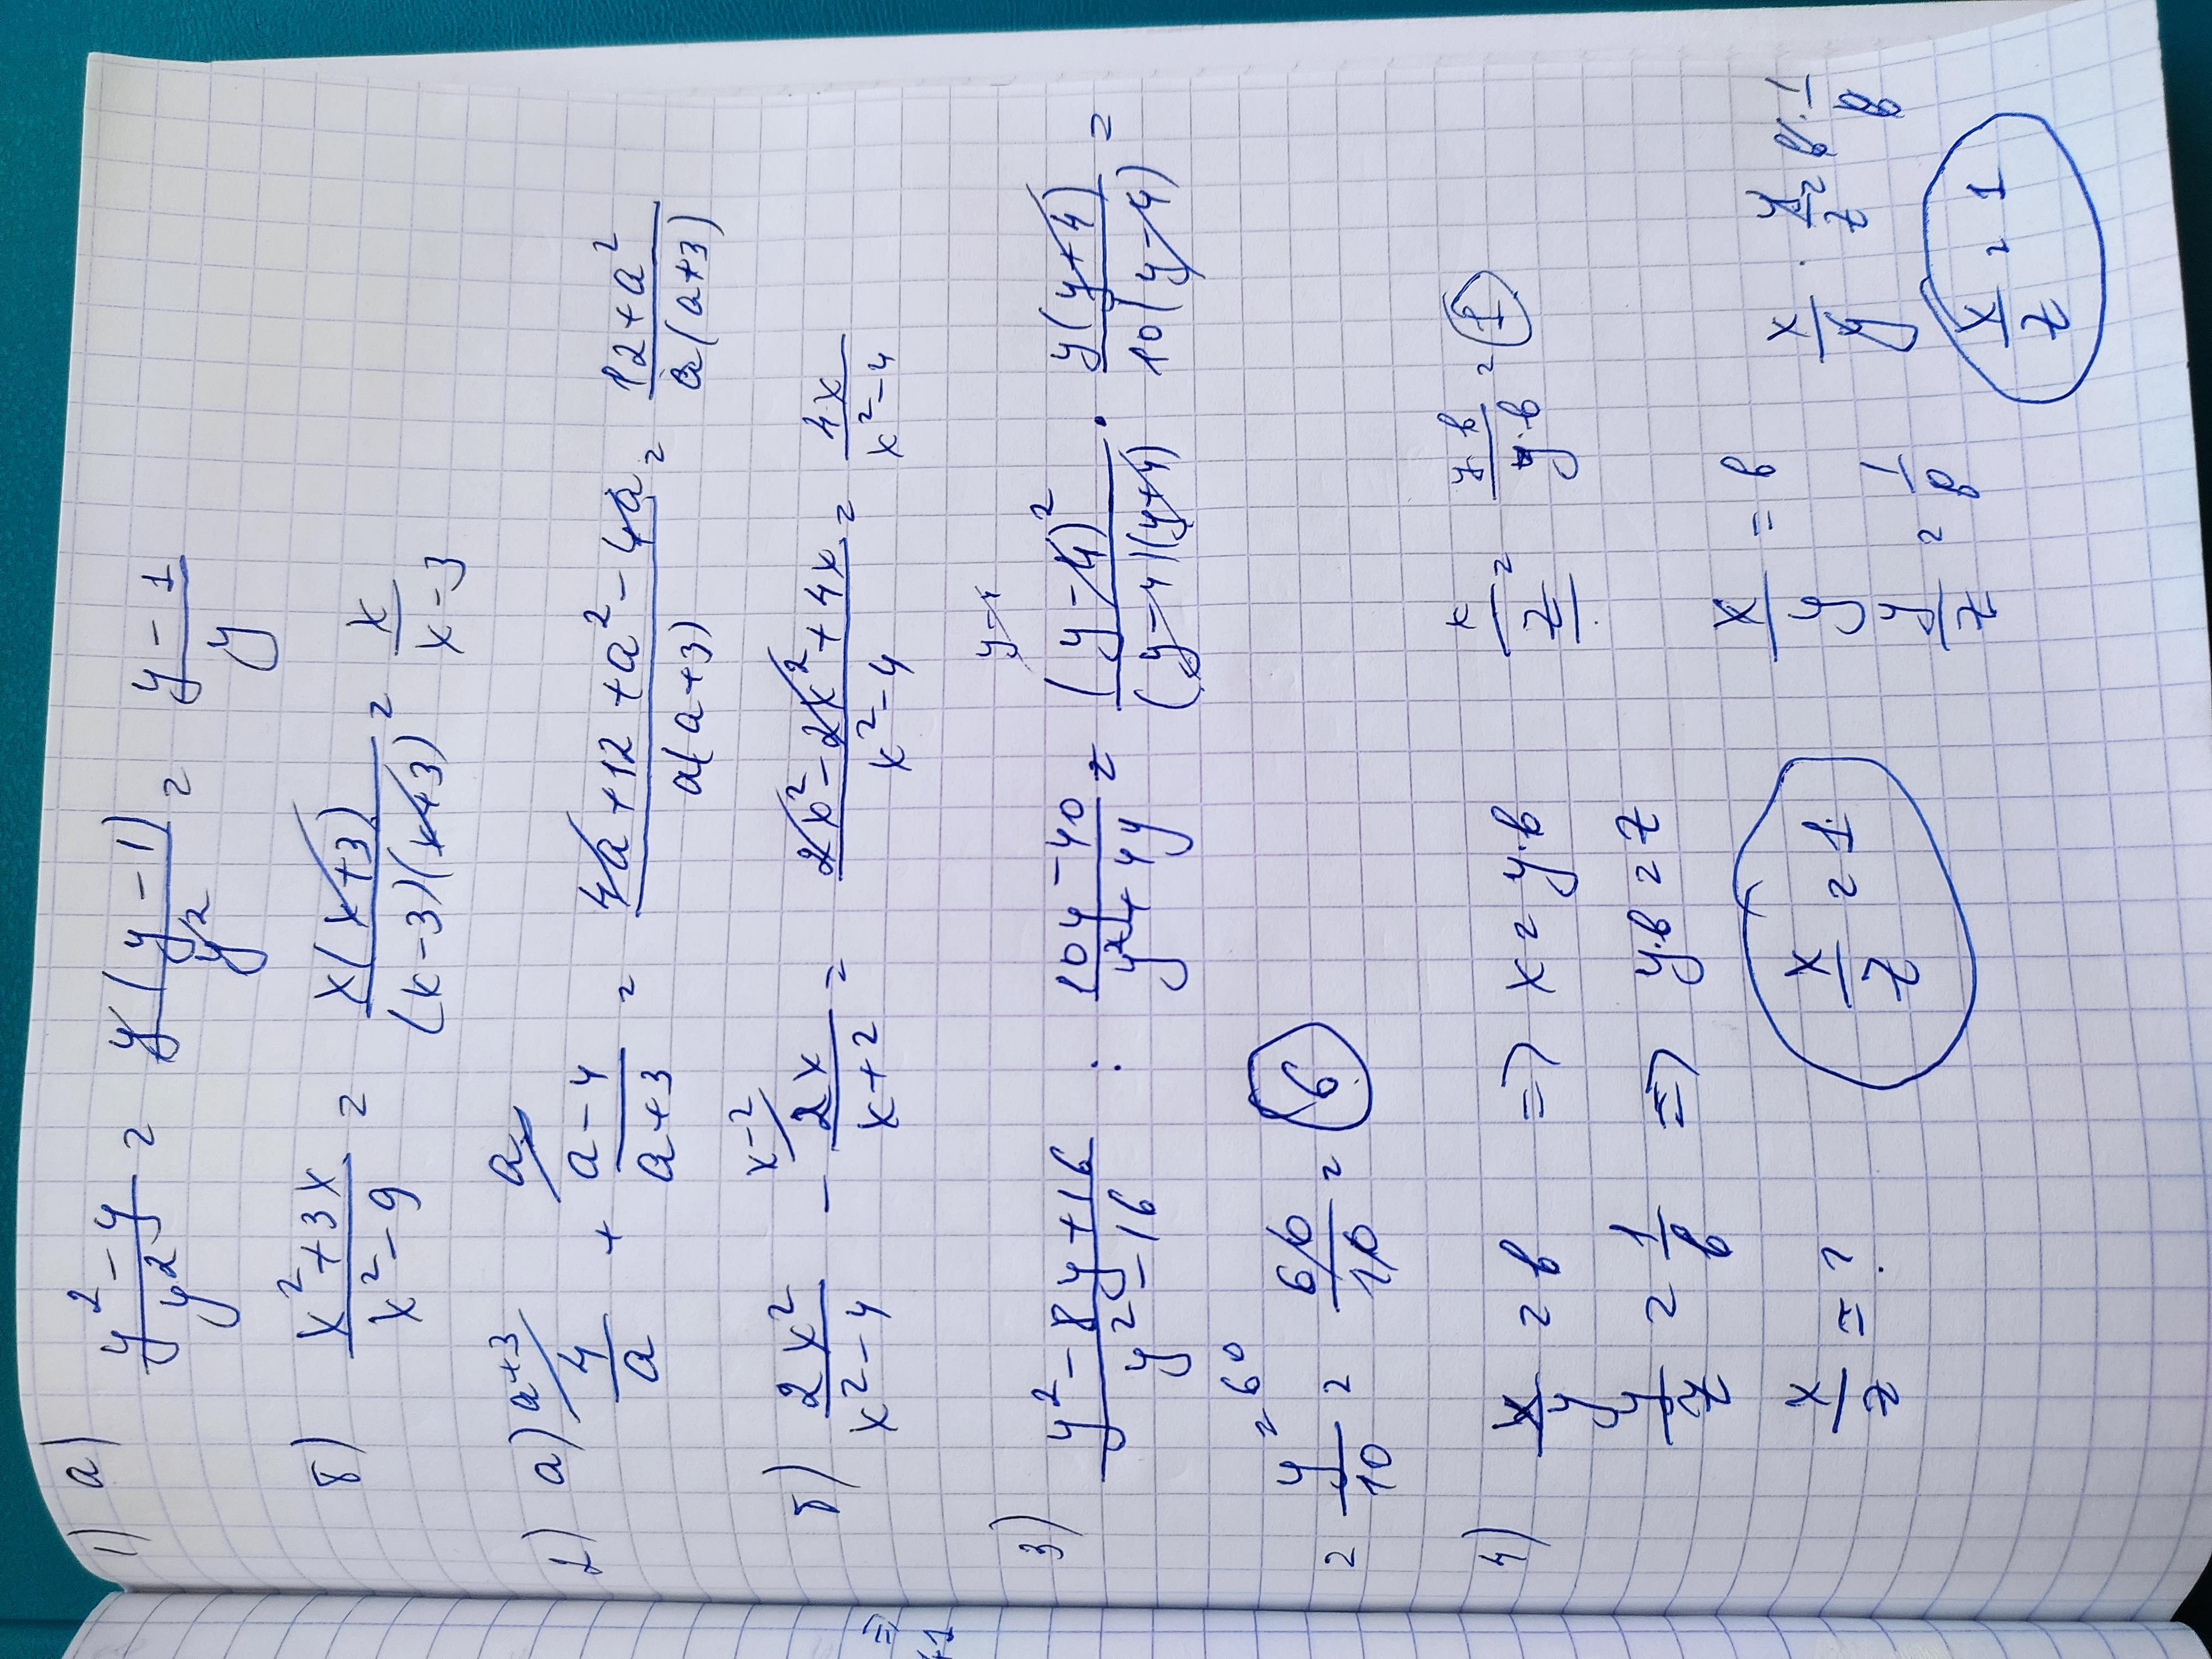 1) а) (y² - y)/y² = y(y - 1)/y² = (y - 1)/y
б) (x² + 3x)/(x² - 9) = x(x + 3)/((x - 3)(x + 3)) = x/(x - 3)
2) а) a+3/ 4/a + a/ (a - 4)/(a + 3) = (4a + 12 + a² - 4a)/(a(a + 3)) = (12 + a²)/(a(a + 3))
б) 2x²/(x² - 4) - x-2/ 2x/(x + 2) = (2x² - 2x² + 4x)/(x² - 4) = 4x/(x² - 4)
3) (y² - 8y + 16)/(y² - 16) : (10y - 40)/(y² + 4y) = (y - 4)²/((y - 4)(y + 4)) · y(y + 4)/(10(y - 4)) =
y = 60
= y/10 = 60/10 = 6
4) x/y = b => x = y·b x/z = y·b/y·b = 1
y/z = 1/b => y·b = z
x/z = ? x/z = 1
x/y = b
y/z = 1/b
x/y · y/z = b · 1/b
x/z = 1
=>
+1